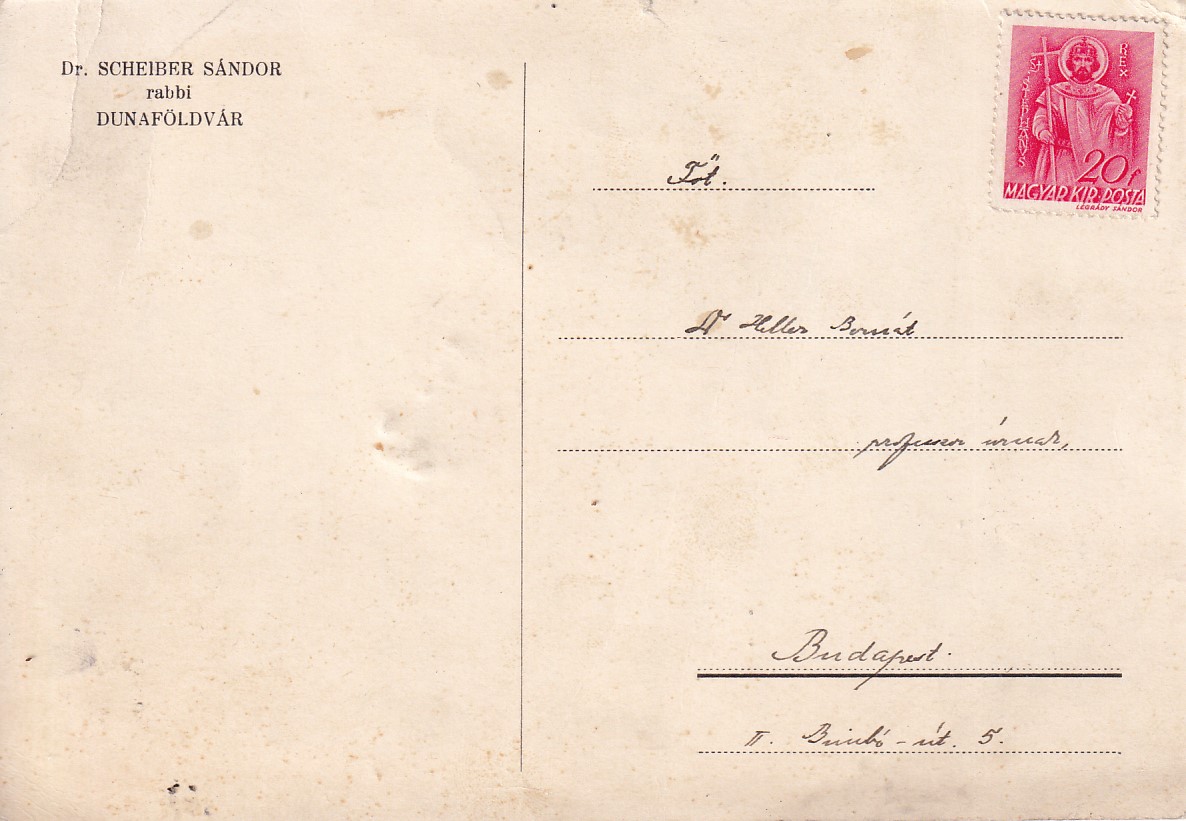 Dr. SCHEIBER SÁNDOR
rabbi
DUNAFÖLDVÁR
ST STEPHANVS
REX
20f
MAGYAR KIR. POSTA
LÉGRÁDY SÁNDOR
Főt.
Dr Heller Bernát
professor úrnak,
Budapest.
II. Bimbó-út. 5.